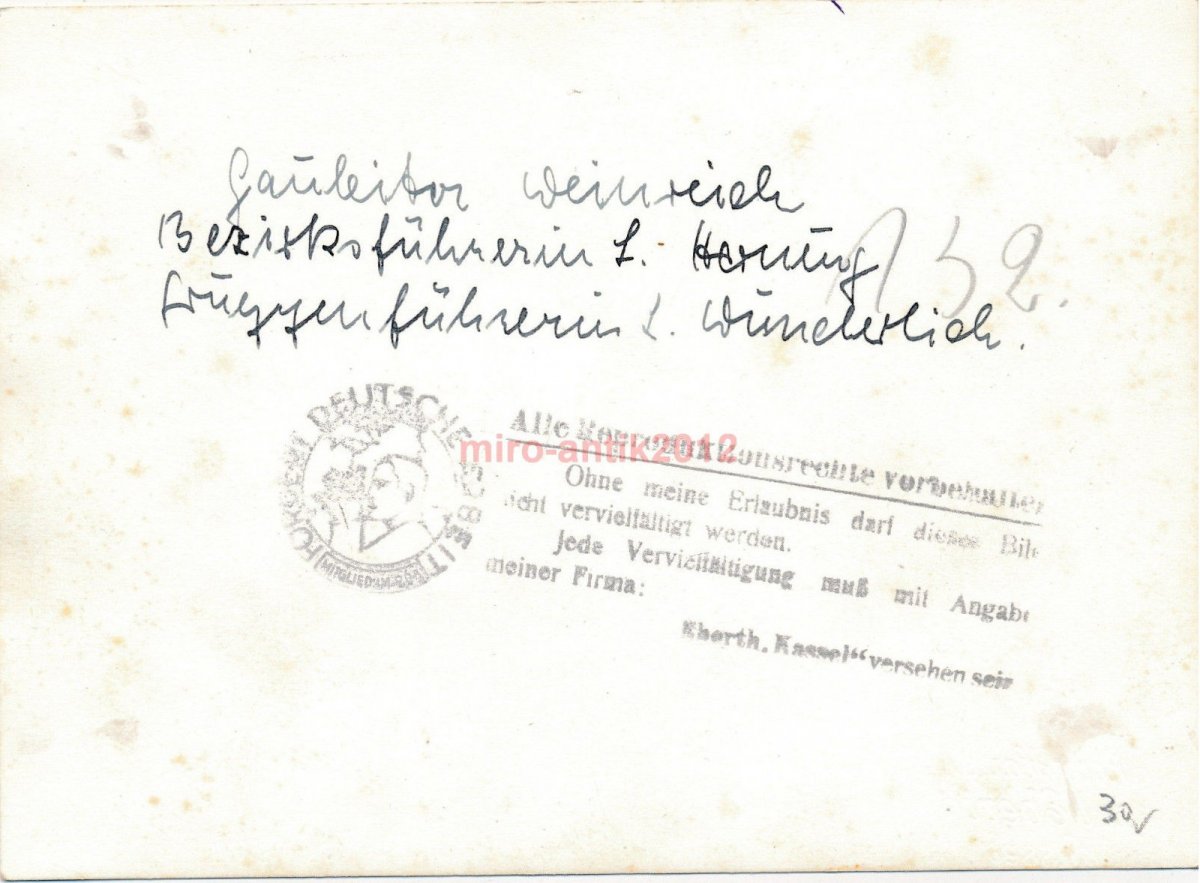 Gauleiter Weinreich
Bezirksführerin L. Hornung
Gruppenführerin L. Wunderlich.
152.
DEUTSCHE
miro-antik2012
Alle Reproduktionsrechte vorbehalten
Ohne meine Erlaubnis darf dieses Bild
nicht vervielfältigt werden.
Jede Vervielfältigung muß mit Angabe
meiner Firma:
Eberth, Kassel“ versehen sein
30